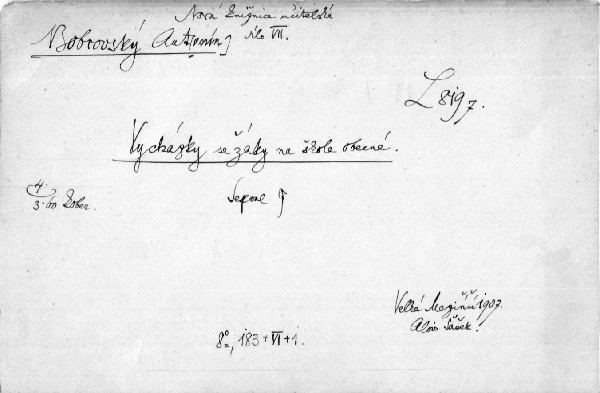 Nová Knižnice učitelská
číslo VII.
Bobrovský Ant[onín]
L 819 7.
Vycházky se žáky na škole obecné.
Sepsal
4
3·60 Kober.
Velké Meziříčí 1907.
Alois Šašek.
8°, 183+VI+1.